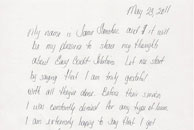 May 23, 2011
My name is Jamie and it will
be my pleasure to share my thoughts
about Gary Scott Let me start
by saying that I am truly grateful
with all they've done. Before their service
I was constantly denied for any type of loan.
I am extremely happy to say that I got